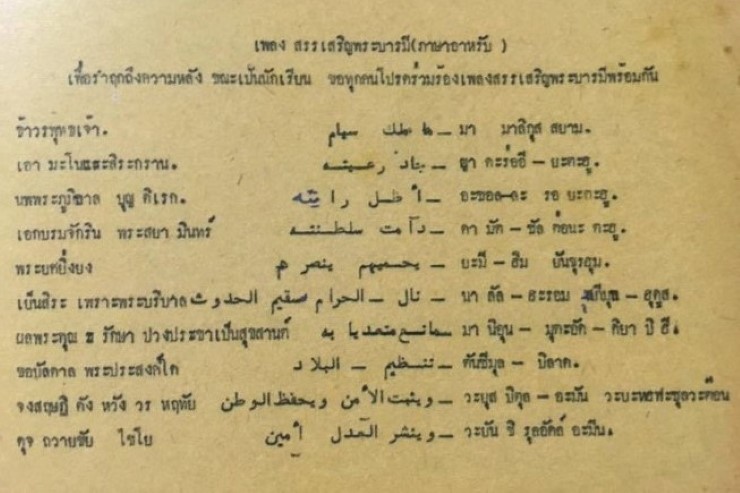 เพลง สรรเสริญพระบารมี(ภาษาอาหรับ )
เพื่อรำฤกถึงความหลัง ขณะเป็นนักเรียน ขอทุกคนโปรดร่วมร้องเพลงสรรเสริญพระบารมีพร้อมกัน
ข้าวรพุทธเจ้า. سيام — มา มาลิกุส สยาม.
เอา มะโนและสิระกราน. جاد رعيته — ญา ดะร่ออี – ยะตะฮู.
นพพระภูมิบาล บุญ ดิเรก. أظل رايته — อะซอล-ละ รอ ยะตะฮู.
เอกบรมจักริน พระสยา มินทร์ دآمت سلطنته — ดา มัต – ซัล ตอนะ ตะฮู.
พระยศยิ่งยง يحميهم ينصرهم — ยะมี – ฮิม ยันซุรฮุม.
เย็นศิระ เพราะพระบริบาล نال – الحرام صقيم الحدوث — นา ลัล – ฮะรอม – ฮุดูส.
ผลพระคุณ ธ รักษา ปวงประชาเป็นสุขสานต์ مانع متعديا به — มา นิอุน – มุตะอัด – ดิยา บี ฮี.
ขอบันดาล พระประสงค์ใด تنظيم – البلاد — ตันซีมุล – บิลาด.
จงสฤษฎิ์ ดัง หวัง วร หฤทัย ويثبت الأمن ويحفظ الوطن — วะยุส บิตุล – อะมัน วะยะหฟะซุลวะต๊อน
ดุจ ถวายชัย ไชโย وينشر العدل أمين — วะยัน ชิ รุลอัดล์ อะมีน.